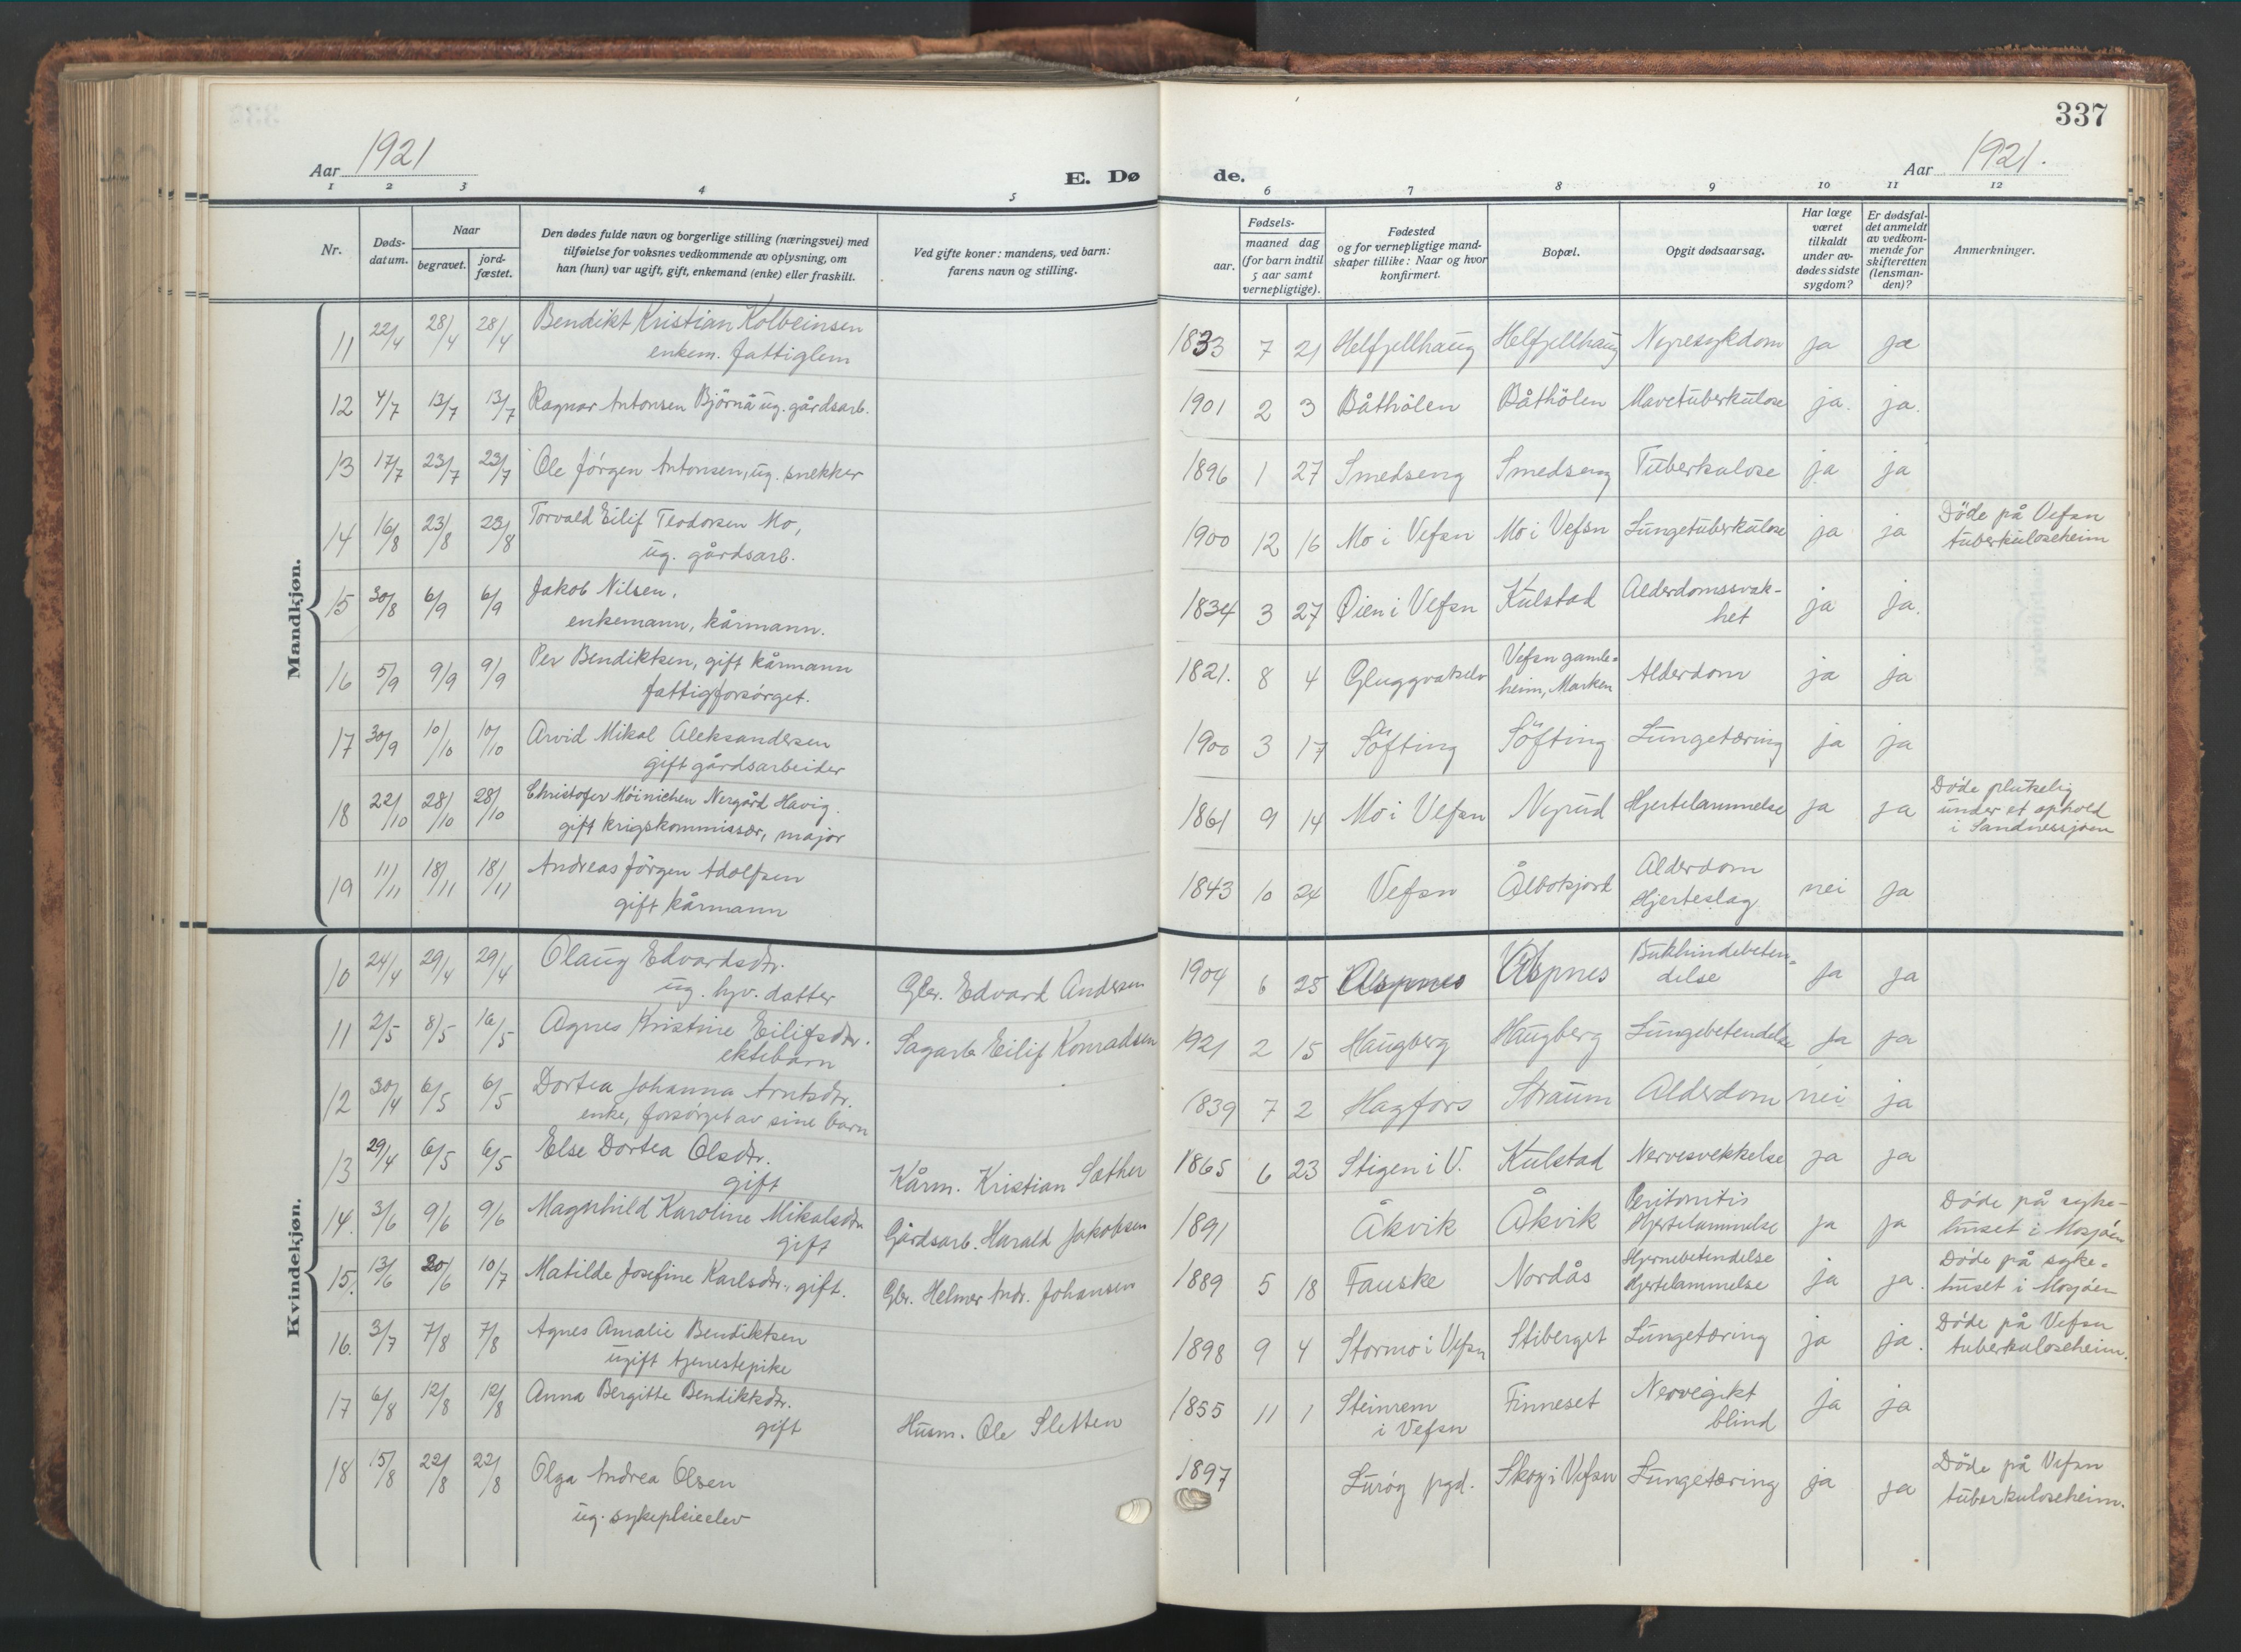 337
Aar 1921
E. Døde.
Aar 1921.
1 2 3 4 5 6 7 8 9 10 11 12
Nr.
Døds-datum.
Naar
begravet.
jord-fæstet.
Den dødes fulde navn og borgerlige stilling (næringsvei) med
tilføielse for voksnes vedkommende av oplysning, om
han (hun) var ugift, gift, enkemand (enke) eller fraskilt.
Ved gifte koner: mandens, ved barn:
farens navn og stilling.
Fødsels-
aar.
maaned dag
(for barn indtil
5 aar samt
vernepligtige).
Fødested
og for vernepligtige mand-
skaper tillike: Naar og hvor
konfirmert.
Bopæl.
Opgit dødsaarsag.
Har læge
været
tilkaldt
under av-
dødes sidste
sygdom?
Er dødsfal-
det anmeldt
av vedkom-
mende for
skifteretten
(lensman-
den)?
Anmerkninger.
Mandkjøn.
11 22/4 28/4 28/4 Bendikt Kristian Kolbeinsen
enkem. fattiglem
1833 7 21 Helfjellhaug Helfjellhaug Nyresykdom ja ja
12 4/7 13/7 13/7 Ragnar Antonsen Björnå ug. gårdsarb.
1901 2 3 Båthölen Båthölen Mavetuberkulose ja. ja.
13 17/7 23/7 23/7 Ole Jörgen Antonsen, ug. snekker
1896 1 27 Smedseng Smedseng Tuberkulose ja ja
14 16/8 23/8 23/8 Torvald Eilif Teodorsen Mo,
ug. gårdsarb.
1900 12 16 Mo i Vefsn Mo i Vefsn Lungetuberkulose ja ja Döde på Vefsn
tuberkuloseheim
15 30/8 6/9 6/9 Jakob Nilsen,
enkemann, kårmann.
1834 3 27 Øien i Vefsn Kulstad Alderdomssvak-
het ja ja.
16 5/9 9/9 9/9 Per Bendiktsen, gift kårmann
fattigforsörget.
1821. 8 4 Gluggvatselv Vefsn gamle-
heim, Marken Alderdom ja ja
17 30/9 10/10 10/10 Arvid Mikal Aleksandersen
gift gårdsarbeider
1900 3 17 Söfting Söfting Lungetæring ja ja
18 22/10 28/10 28/10 Christofer Möinichen Nergård Havig.
gift krigskommissær, major
1861 9 14 Mo i Vefsn Nyrud Hjertelammelse ja ja Döde plutselig
under et ophold
i Sandnessjöen
19 11/11 18/11 18/11 Andreas Jörgen Adolfsen
gift kårmann
1843 10 24 Vefsn Alderdom
Hjerteslag nei ja
Kvindekjøn.
10 24/4 29/4 29/4 Olaug Edvardsdtr.
ug. hjv. datter Gbr. Edvard Andersen
1904 6 25 Alspnes Bukhindebeten-
delse ja ja
11 2/5 8/5 16/5 Agnes Kristine Eilifsdtr.
ektebarn Sagarb. Eilif Konradsen
1921 2 15 Haugberg Haugberg Lungebetendelse ja ja
12 30/4 6/5 6/5 Dortea Johanna Arntsdtr.
enke, forsörget av sine barn
1839 7 2 Hagfors Straum Alderdom nei ja
13 29/4 6/5 6/5 Else Dortea Olsdtr.
gift Kårm. Kristian Sæther
1865 6 23 Stigen i V. Kulstad Nervesvekkelse ja ja
14. 3/6 9/6 9/6 Magnhild Karoline Mikalsdtr.
gift Gårdsarb. Harald Jakobsen
1891 Åkvik Åkvik Peritonitis
Hjertelammelse ja ja Döde på syke-
huset i Mosjöen
15. 13/6 20/6 10/7 Matilde Josefine Karlsdtr., gift. Gbr. Helmer Andr. Johansen
1889 5 18 Fauske Nordås Hjernebetendelse
Hjertelammelse ja ja. Döde på syke-
huset i Mosjöen
16. 3/7 7/8 7/8 Agnes Amalie Bendiktsen
ugift tjenestepike
1898 9 4 Stormo i Vefsn Stiberget Lungetæring ja ja. Döde på Vefsn
tuberkuloseheim.
17 6/8 12/8 12/8 Anna Bergitte Bendiktsdtr.
gift Husm. Ole Sletten
1855 11 1 Steinrem
i Vefsn Finneset Nervegikt
blind ja ja
18 15/8 22/8 22/8 Olga Andrea Olsen
ug. sykepleieelev
1897 Luröy pgd. Skog i Vefsn Lungetæring ja ja Döde på Vefsn
tuberkuloseheim.